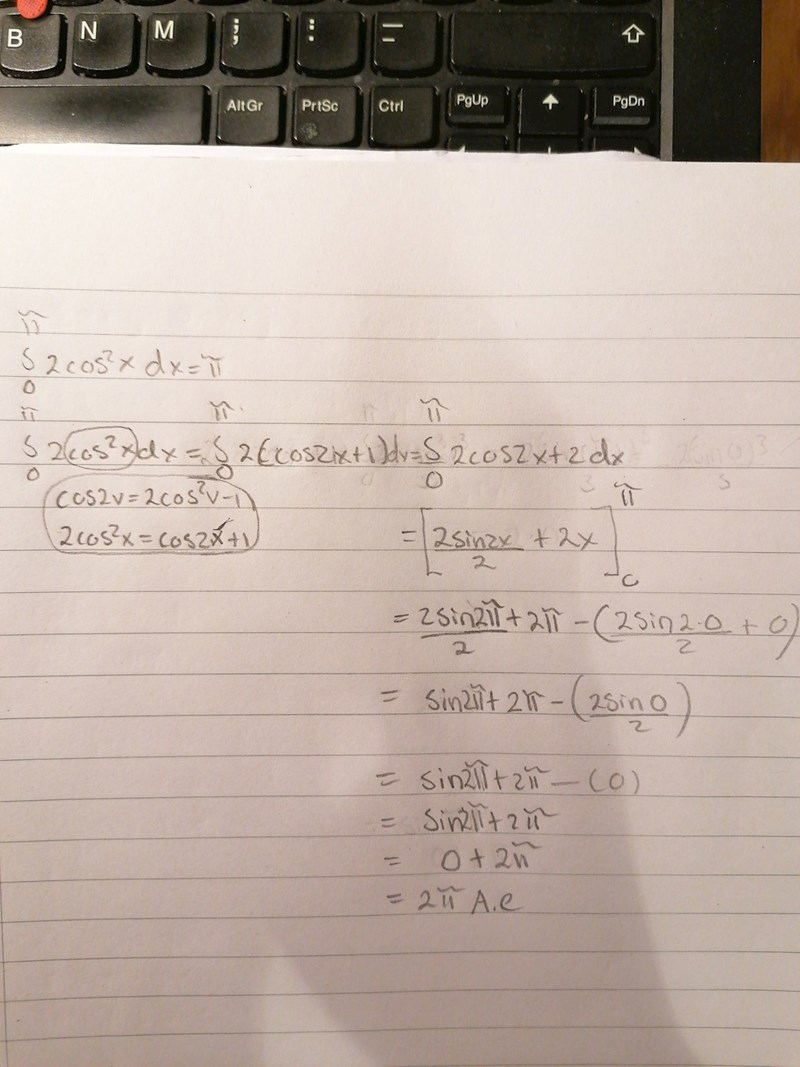 B N M ; : _ – ⇧
Alt Gr PrtSc Ctrl PgUp ↑ PgDn
π
∫ 2cos²x dx = π
0
π π π
∫ 2cos²x dx = ∫ 2(cos2x+1)dv = ∫ 2cos2x+2 dx
0 0 0
cos2v = 2cos²v-1
2cos²x = cos2x+1
= [2sin2x/2 + 2x]π0
= 2sin2π/2 + 2π - (2sin2·0/2 + 0)
= sin2π + 2π - (2sin0/2)
= sin2π + 2π - (0)
= sin2π + 2π
= 0 + 2π
= 2π A.e